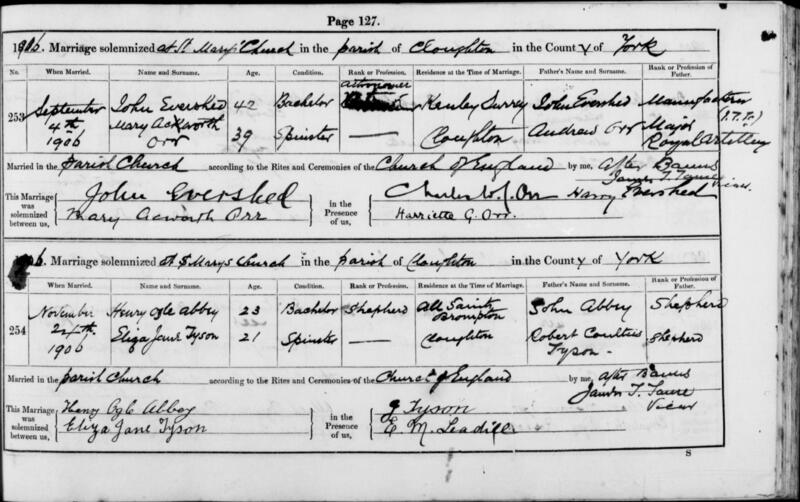 Page 127.
1906. Marriage solemnized at St Marys Church in the parish of Cloughton in the County of York
No. When Married. Name and Surname. Age. Condition. Rank or Profession. Residence at the Time of Marriage. Father's Name and Surname. Rank or Profession of Father.
253 September 4th 1906 John Evershed 42 Bachelor astronomer Kenley Surrey John Evershed Manufacturer
Mary Ackworth Orr 39 Spinster — Cloughton Andrew Orr Major Royal Artillery
Married in the parish Church according to the Rites and Ceremonies of the Church of England by me, After Banns
Vicar.
This Marriage was solemnized between us, John Evershed in the Presence of us, Charles W. J. Orr Harry Evershed
Mary Acworth Orr Harriette G. Orr.
1906. Marriage solemnized at St Marys Church in the parish of Cloughton in the County of York
No. When Married. Name and Surname. Age. Condition. Rank or Profession. Residence at the Time of Marriage. Father's Name and Surname. Rank or Profession of Father.
254 November 24th 1906 Henry Ogle Abbey 23 Bachelor Shepherd All Saints Brompton John Abbey Shepherd
Eliza Jane Tyson 21 Spinster — Cloughton Robert Coultus Tyson Shepherd
Married in the parish Church according to the Rites and Ceremonies of the Church of England by me, after Banns
Vicar
This Marriage was solemnized between us, Henry Ogle Abbey in the Presence of us, J Tyson
Eliza Jane Tyson E. M. Leadill
S